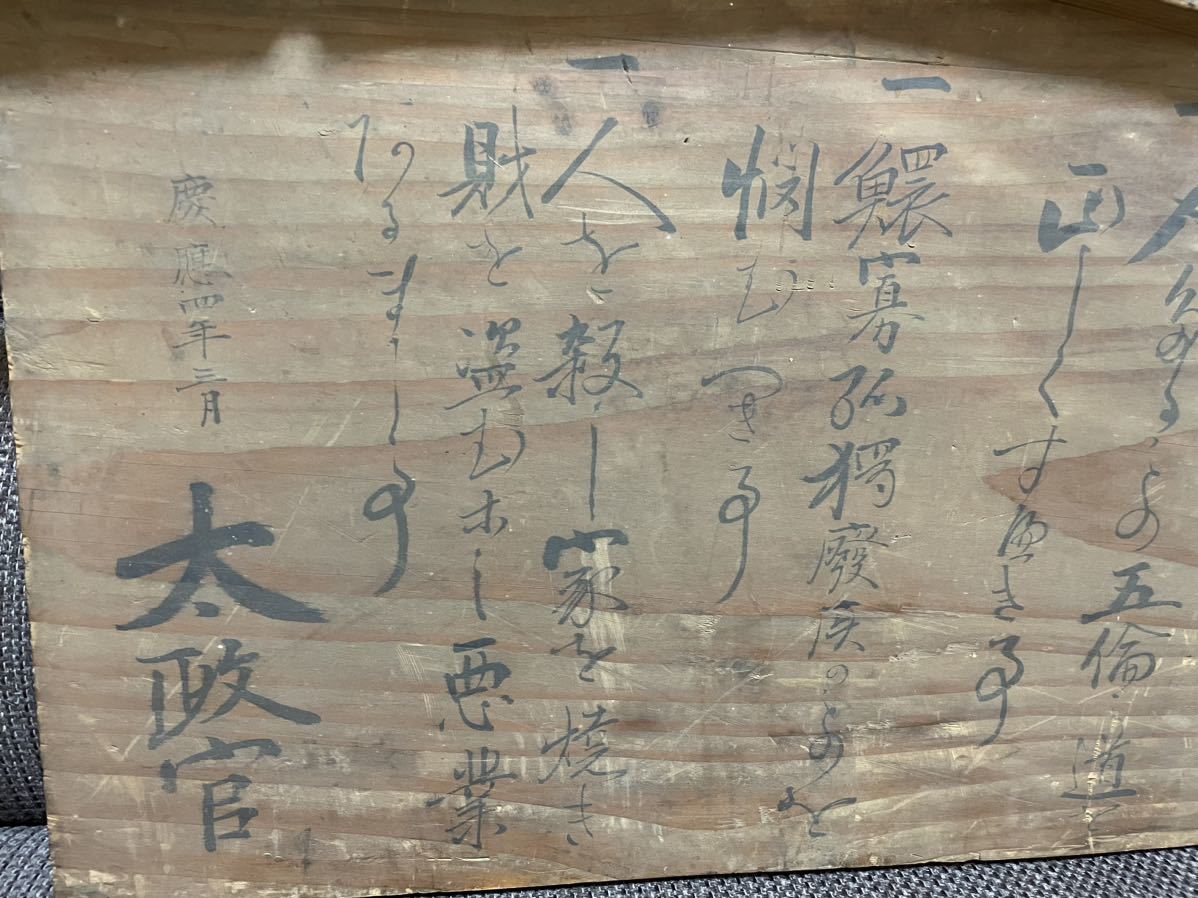 一
人たるもの五倫の道を
正しくすへき事
一
鰥寡孤獨廢疾のものを
憫むへき事
一
人を殺し家を焼き
財を盗む等之悪業
あるましく事
慶應四年三月
太政官